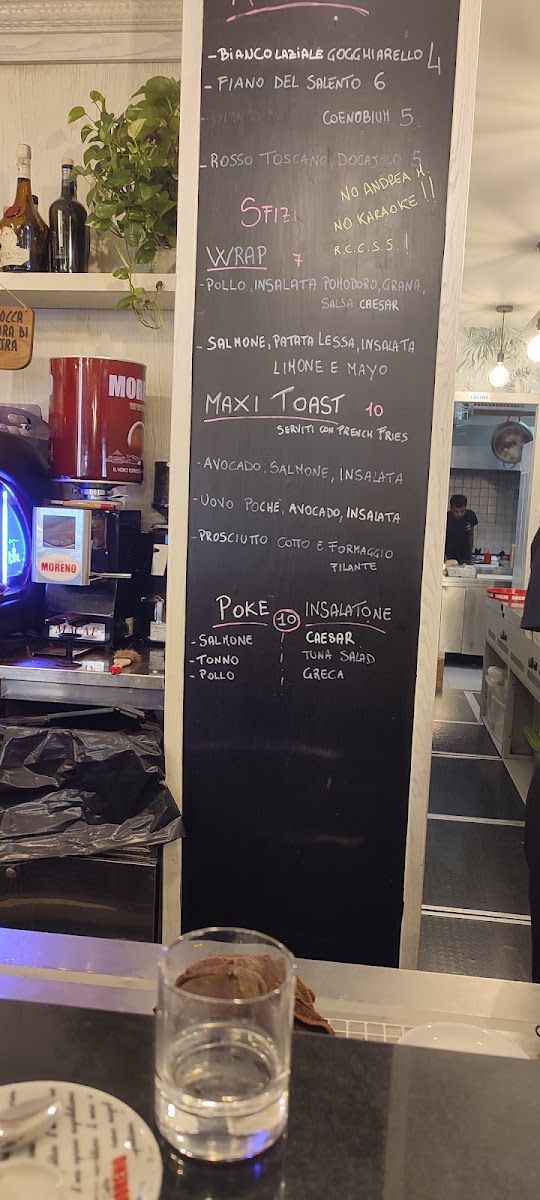 - BIANCO LAZIALE GOGGHIARELLO 4
- FIANO DEL SALENTO 6
COENOBIUM 5
- ROSSO TOSCANO DOGAJOLO 5
NO ANDREA H.
NO KARAOKE !!
R.C.C.S.S.!
SFIZI
WRAP 7
- POLLO, INSALATA POMODORO, GRANA,
SALSA CAESAR
- SALMONE, PATATA LESSA, INSALATA
LIMONE E MAYO
MAXI TOAST 10
SERVITI CON FRENCH FRIES
- AVOCADO, SALMONE, INSALATA
- UOVO POCHÈ, AVOCADO, INSALATA
- PROSCIUTTO COTTO E FORMAGGIO
FILANTE
POKE 10 INSALATONE
- SALMONE CAESAR
- TONNO TUNA SALAD
- POLLO GRECA
MORE
MORENO
CUCINA
MORENO